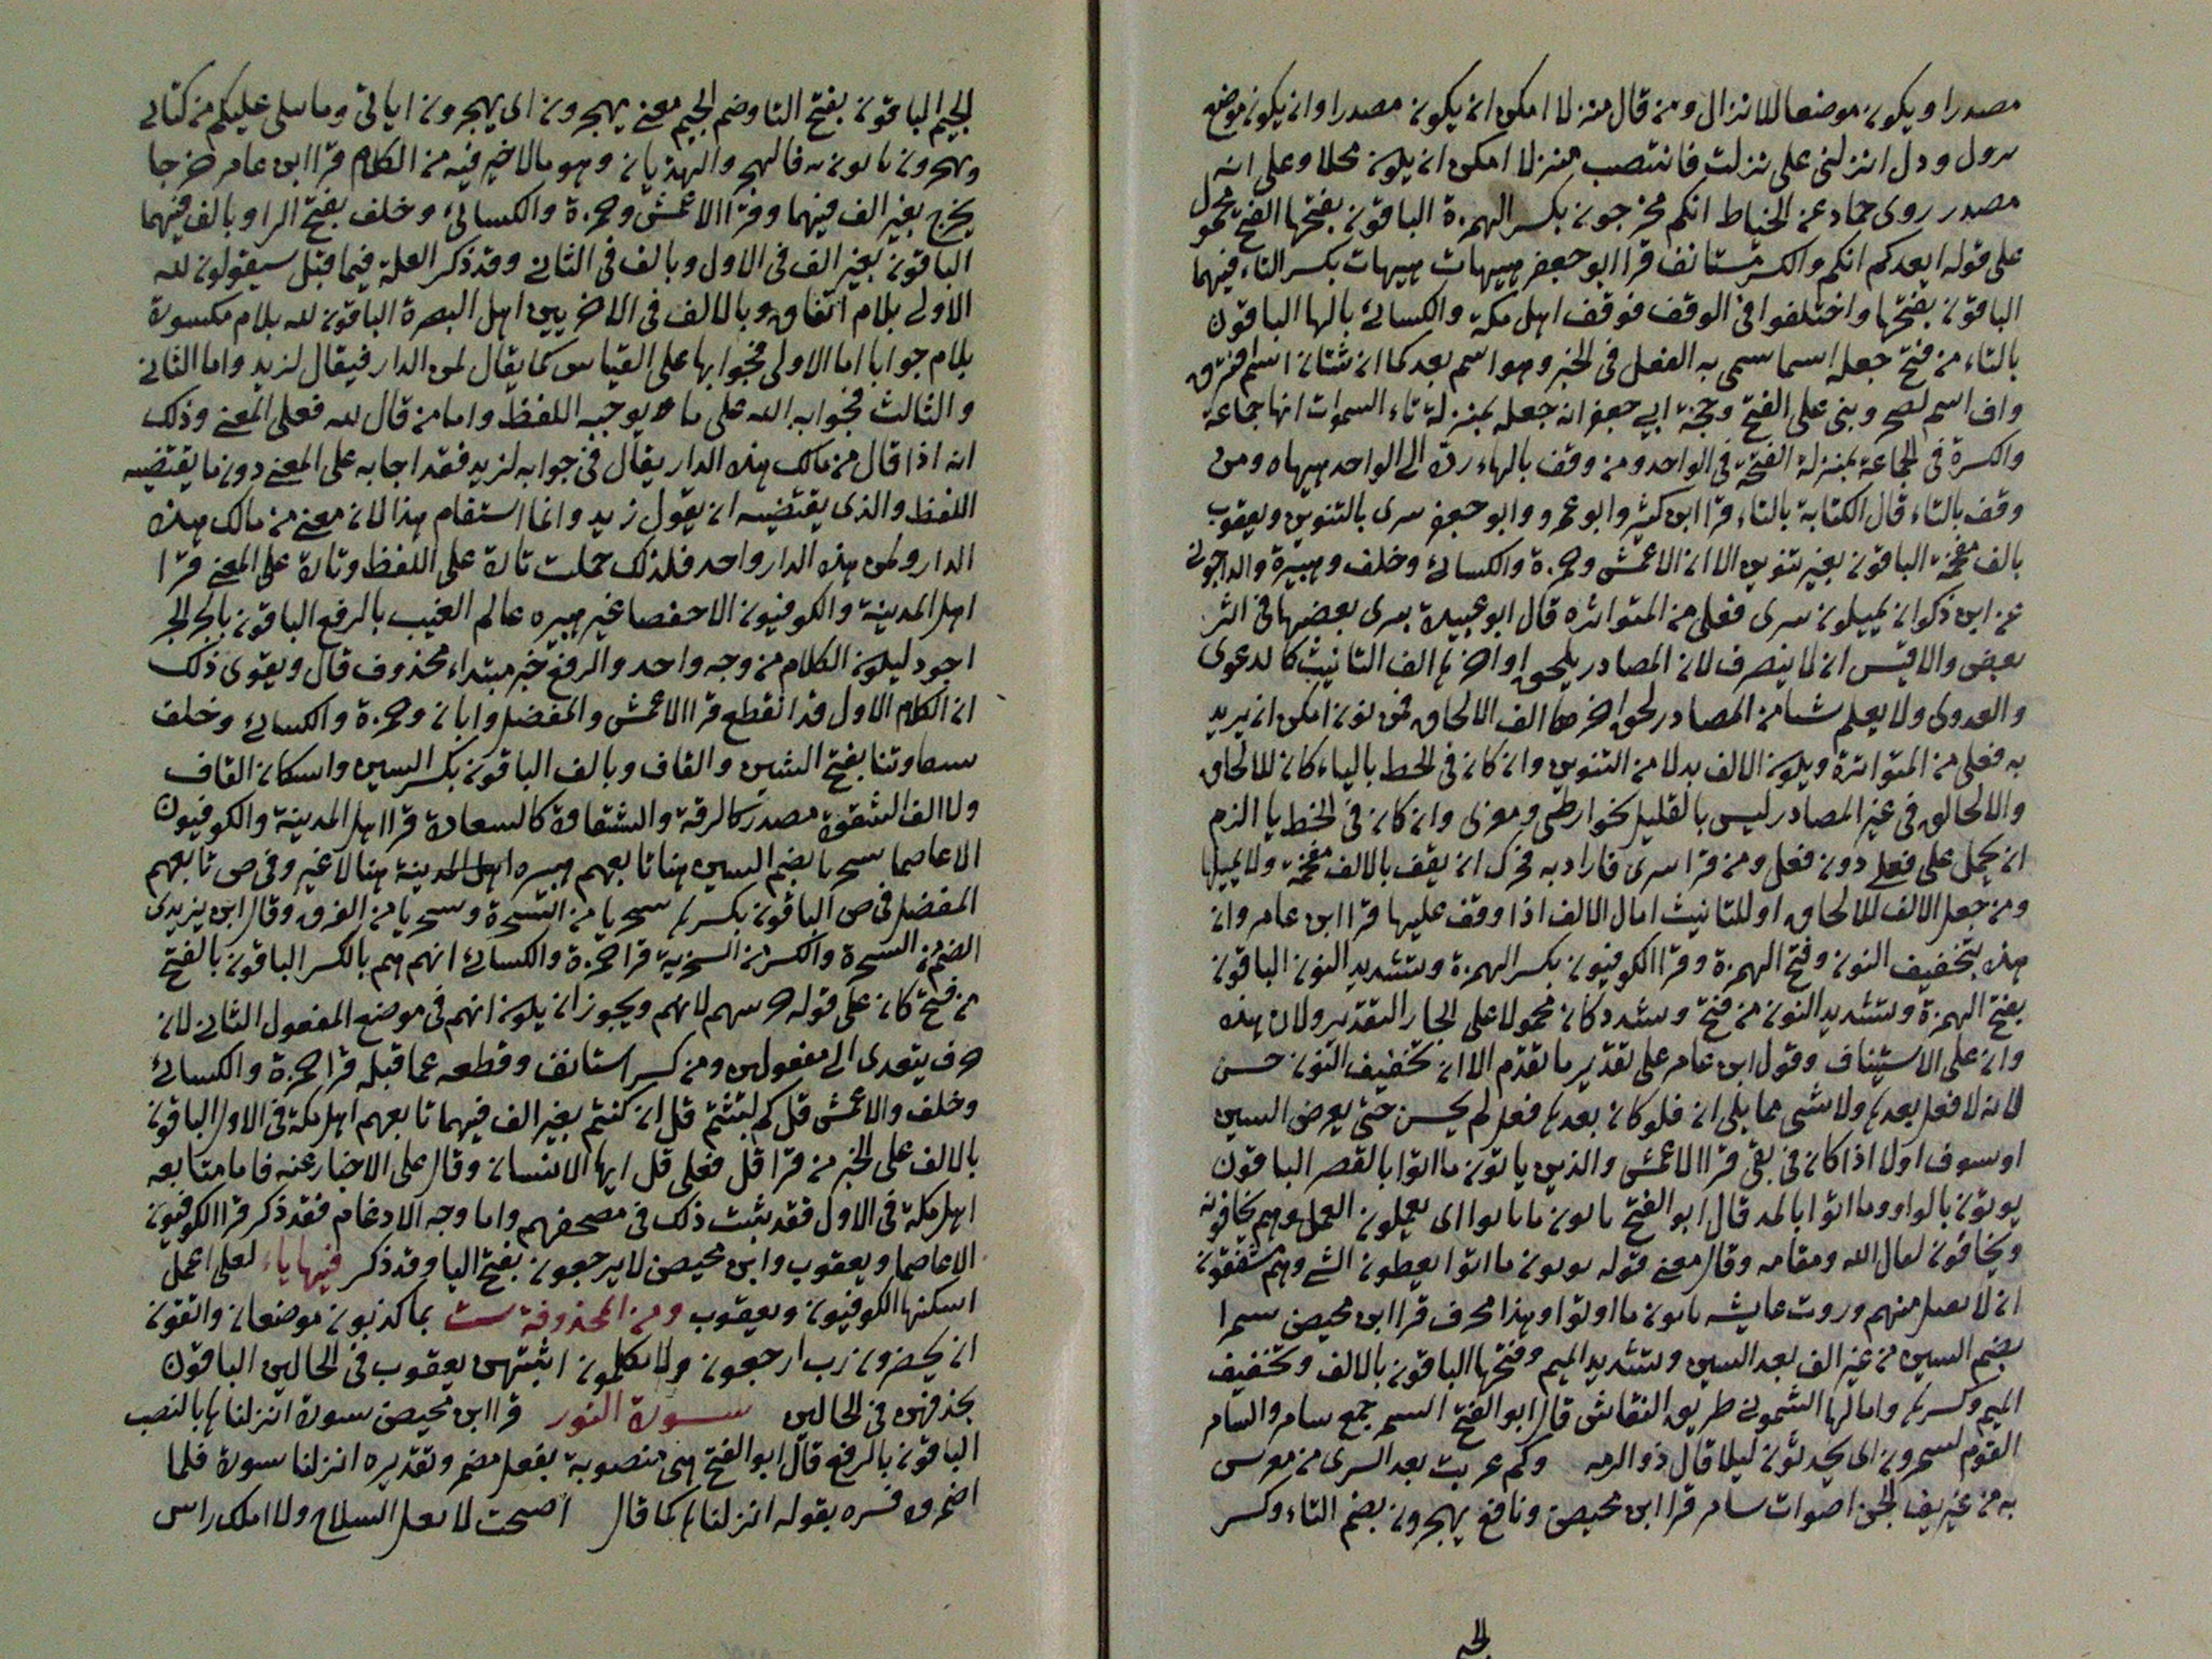 مصدرا ويكون موضعا للانزال ومن قال منزلا امكن ان يكون مصدرا وان يكون موضع
ودل انزلنى على نزلت فانتصب منزلا امكن ان يكون محلا وعلى انه
مصدر روى حماد عن الخياط انكم مخرجون بكسر الهمزة الباقون بفتحها الفتح محمول
على قوله ايعدكم انكم والكسر مستانف قرا ابو جعفر هيهات هيهات بكسر التاء فيهما
الباقون بفتحها واختلفوا فى الوقف فوقف اهل مكة والكسائى بالها الباقون
بالتاء من فتح جعله اسما سمى به الفعل فى الخبر وهو اسم بعد كما ان شتان اسم افترق
واف اسم وبنى على الفتح وحجة ابي جعفر انه جعله بمنزلة تاء السموات انها جماعة
والكسرة فى الجماعة بمنزلة الفتحة فى الواحد ومن وقف بالهاء رده الى الواحد هيهاه ومن
وقف بالتاء قال الكتابة بالتاء قرا ابن كثير وابو عمرو وابو جعفر سرى بالتنوين ويعقوب
بالف مفخمة الباقون بغير تنوين الا ان الاعمش وحمزة والكسائى وخلف وهبيرة والداجونى
عن ابن ذكوان يميلون سرى فعلى من المتواتره قال ابو عبيدة بسرى بعضها فى اثر
بعض والاقيس ان لا ينصرف لان المصادر يلحق اواخرها الف التانيث كالدعوى
والعدوى ولا يعلم شيا من المصادر لحق اخرها الف الالحاق فمن نون امكن ان يريد
به فعلى من المتواترة ويكون الالف بدلا من التنوين وان كان فى الخط بالياء كان للالحاق
والالحاق فى غير المصادر ليس بالقليل نحو ارطى ومعزى وان كان فى الخط يا الزم
ان يحمل على فعلى دون فعل ومن قرا سرى فاراد به فحرك ان يقف بالالف مفخمة ولا يميلها
ومن جعل الالف للالحاق او للتانيث امال الالف اذا وقف عليها قرا ابن عامر وان
هذه بتخفيف النون وفتح الهمزة وقرا الكوفيون بكسر الهمزة وبتشديد النون الباقون
بفتح الهمزة وبتشديد النون من فتح وشدد كان محمولا على الجار التقدير ولان هذه
وان على الاستيناف وقول ابن عامر على تقدير ما تقدم الا ان تخفيف النون حسن
لانه لا فعل بعدها ولا شى مما يلى ان فلو كان بعدها فعل لم يحسن حتى يعوض السين
او سوف او لا اذا كان فى نفى قرا الاعمش والذين ياتون ما اتوا بالقصر الباقون
يوتون بالواو وما اتوا بالمد قال ابو الفتح ياتون ما اتوا اى يعملون العمل وهم يخافونه
ويخافون لقا الله ومقامه وقال معنى قوله يوتون ما اتوا يعطون الشى وهم مشفقون
ان لا يقبل منهم وروت عايشه ياتون ما اوتوا وهذا محرف قرا ابن محيصن سمرا
بضم السين من غير الف بعد السين وبتشديد الميم وفتحها الباقون بالالف وتخفيف
الميم وكسرها وامالها الشمونى طريق النقاش قال ابو الفتح السمر جمع سامر والسامر
القوم يسمرون اى يتحدثون ليلا قال ذو الرمه وكم عرست بعد السرى من معرس
به من عزيف الجن اصوات سامر قرا ابن محيصن ونافع يهجرون بضم التاء وكسر
الجيم
الجيم الباقون بفتح التا وضم الجيم معنى يهجرون اى يهجرون اياتى وما يتلى عليكم من كتابى
ويهجرون فالهجر والهذيان وهو ما لا خير فيه من الكلام قرا ابن عامر خرجا
يخرج بغير الف فيهما وقرا الاعمش وحمزة والكسائى وخلف بفتح الرا وبالف فيهما
الباقون بغير الف فى الاول وبالف فى الثانى وقد ذكر العلة فيما قبل سيقولون لله
الاولى بلام اتفاق وبالالف فى الاخريين اهل البصرة الباقون لله بلام مكسورة
بلام جوابا اما الاولى فجوابها على القياس كما يقال لمن الدار فيقال لزيد واما الثانى
والثالث فجوابه الله على ما يوجبه اللفظ واما من قال لله فعلى المعنى وذلك
انه اذا قال من مالك هذه الدار يقال فى جوابه لزيد فقد اجابه على المعنى دون ما يقتضيه
اللفظ والذى يقتضيه ان يقول زيد وانما استقام هذا لان معنى من مالك هذه
الدار ولمن هذه الدار واحد فلذلك حملت تارة على اللفظ وتارة على المعنى قرا
اهل المدينة والكوفيون الا حفصا غير هبيره عالم الغيب بالرفع الباقون بالجر الجر
اجود ليكون الكلام من وجه واحد والرفع خبر مبتداء محذوف قال ويقوى ذلك
ان الكلام الاول قد انقطع قرا الاعمش والمفضل وابان وحمزة والكسائى وخلف
شقاوتنا بفتح الشين والقاف وبالف الباقون بكسر السين واسكان القاف
ولا الف الشقوة مصدر كالرقة والشقاوة كالسعادة قرا اهل المدينة والكوفيون
الا عاصما سخريا بضم السين هنا تابعهم هبيره اهل المدينة هنا لا غير وفى ص تابعهم
المفضل فى ص الباقون بكسرها سخريا من السخرة وسخريا من الفرق وقال ابن يزيدى
الضم من السخرة والكسر من السخرية قرا حمزة والكسائى انهم هم بالكسر الباقون بالفتح
من فتح كان على قوله جزيتهم لانهم ويجوز ان يكون انهم فى موضع المفعول الثانى لان
جزيت يتعدى الى مفعولين ومن كسر استانف وقطعه عما قبله قرا حمزة والكسائى
وخلف والاعمش قل كم لبثتم قل ان كنتم بغير الف فيهما تابعهم اهل مكة فى الاول الباقون
بالالف على الخبر من قرا قل فعلى قل ايها الانسان وقال على الاخبار عنه فاما متابعه
اهل مكة فى الاول فقد يثبت ذلك فى مصحفهم واما وجه الادغام فقد ذكر قرا الكوفيون
الا عاصما ويعقوب وابن محيصن لا يرجعون بفتح اليا وقد ذكر فيها ياء لعلى اعمل
اسكنها الكوفيون ويعقوب ومن المحذوفة ست بما كذبون موضعان واتقون
ان يحضرون رب ارجعون ولا تكلمون اثبتهن يعقوب فى الحالين الباقون
بحذفهن فى الحالين سورة النور قرا ابن محيصن سورة انزلناها بالنصب
الباقون بالرفع قال ابو الفتح هى منصوبة بفعل مضمر وتقديره انزلنا سورة فلما
اضمره فسره بقوله انزلناها كما قال اصبحت لا احمل السلاح ولا املك راس